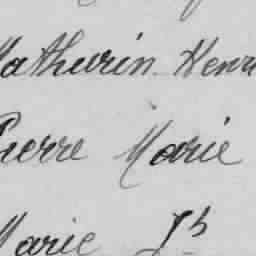 Mathurin Henri
Pierre Marie
Marie Jh